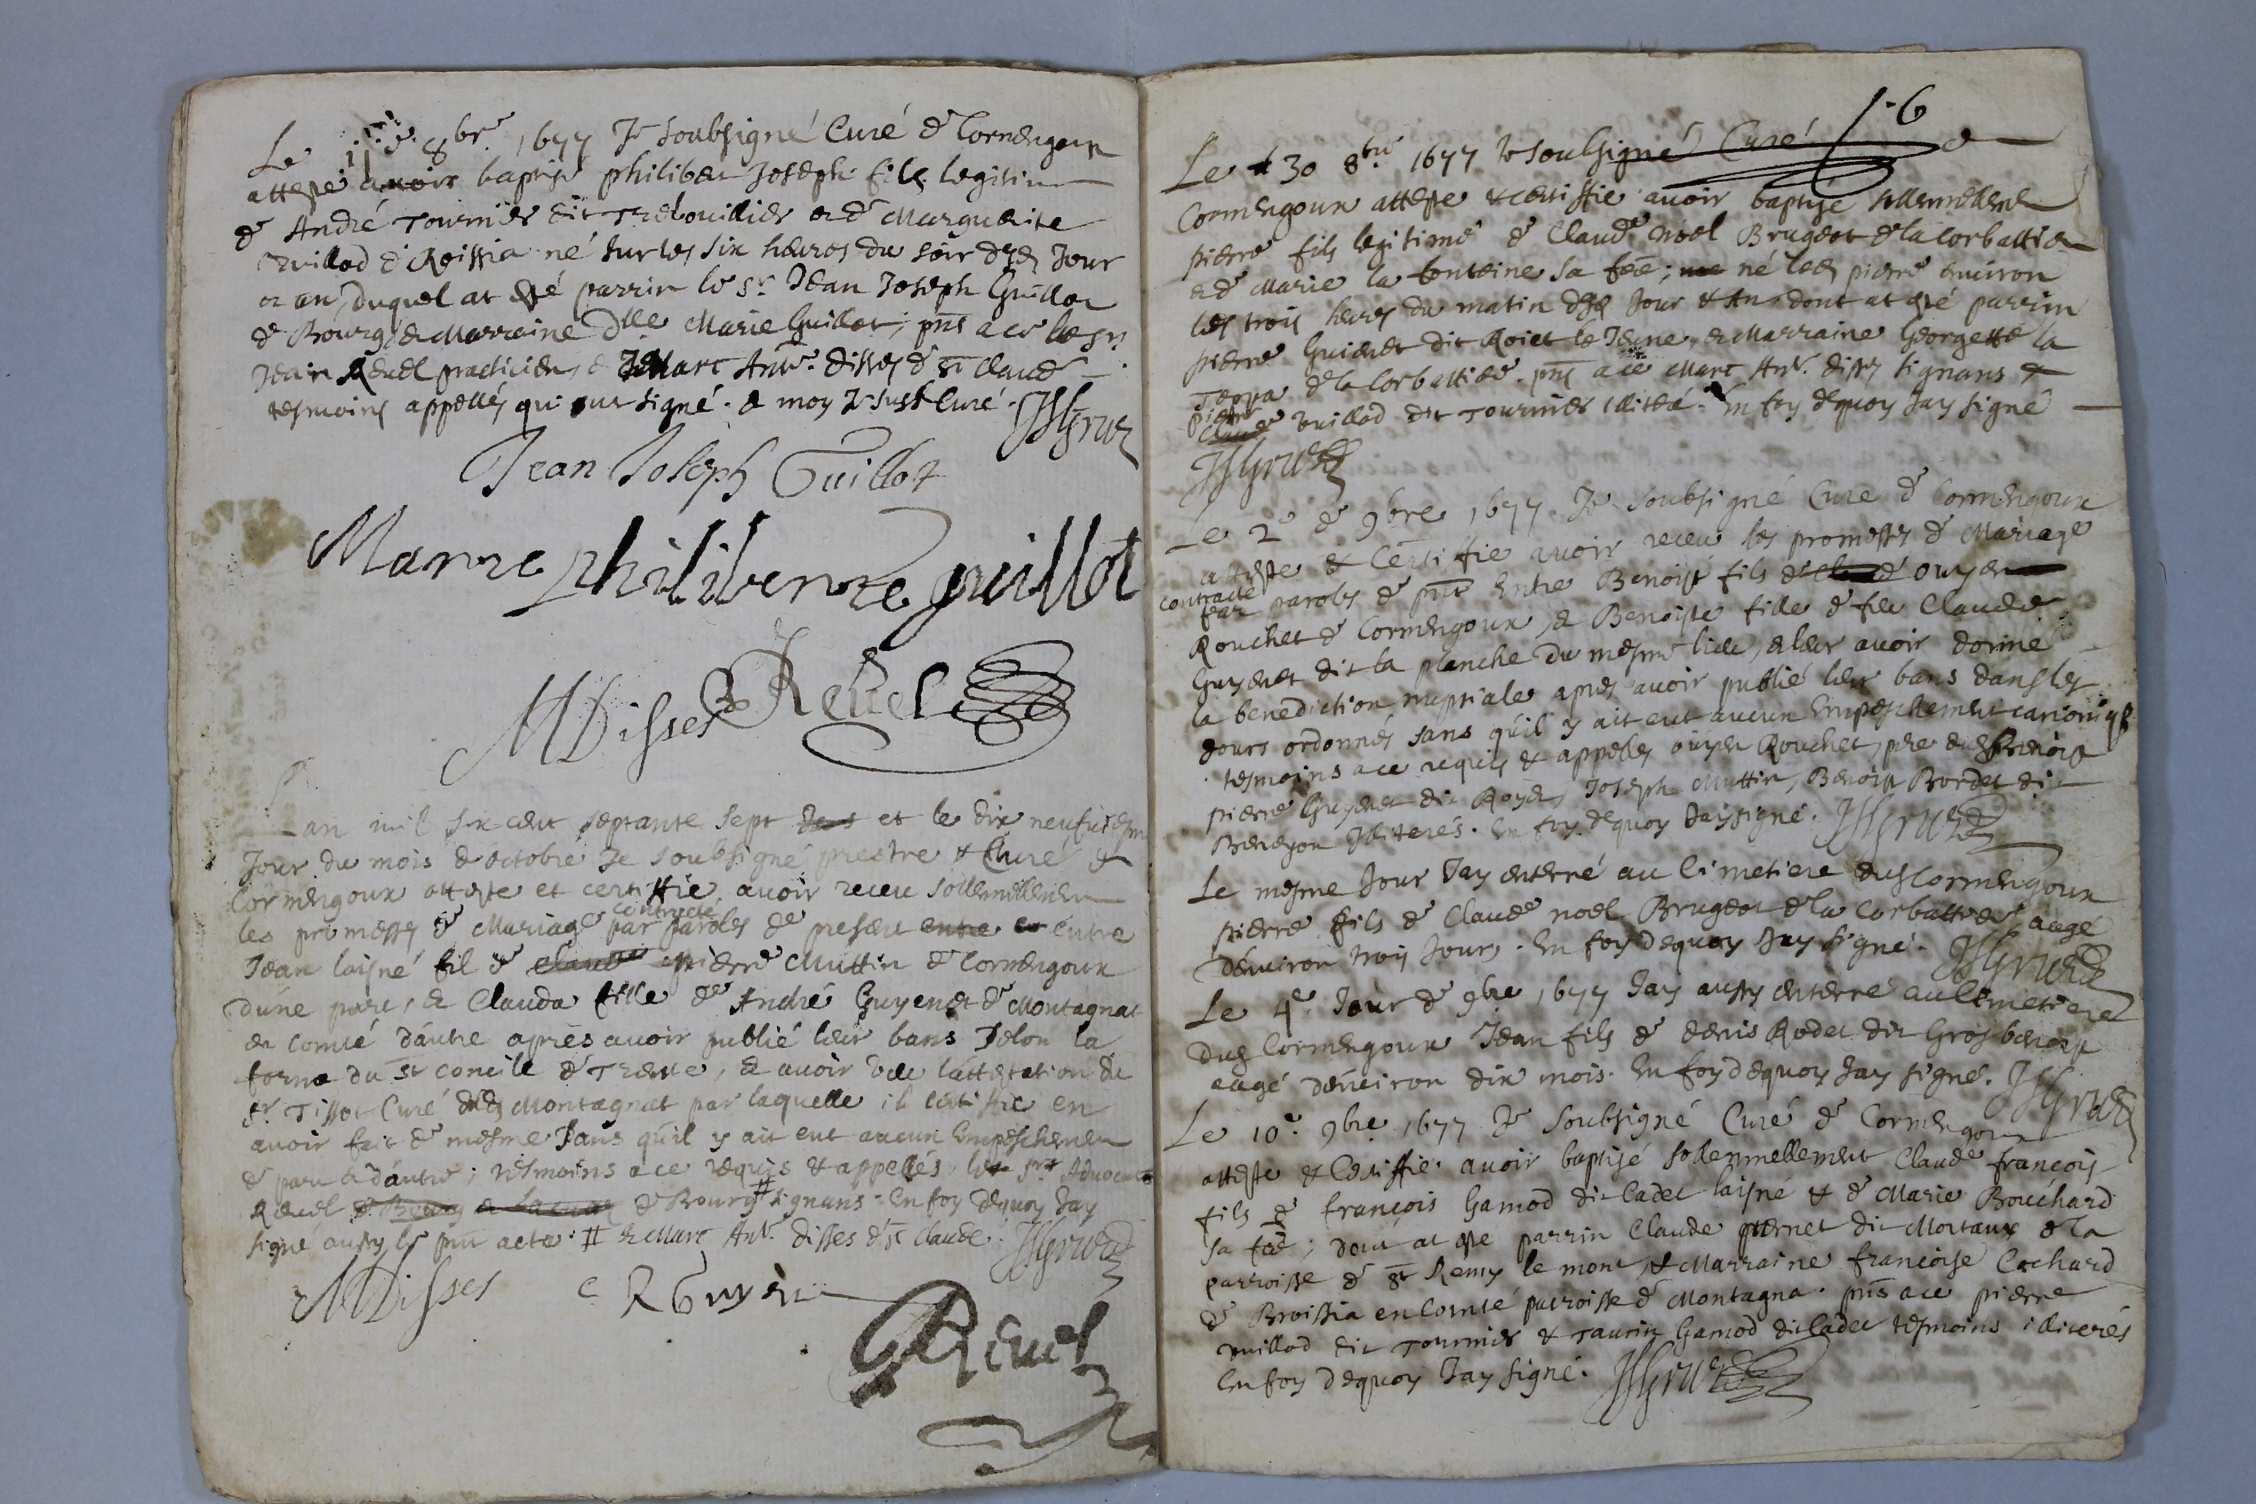 Le 11e 8bre 1677 Je soubsigné Curé de Cormengoux
atteste avoir baptisé philibert Joseph fils legitime
de André Tournier dit Trebouillier et de Marguerite
vuillod de Roissia né sur les six heures du soir desd Jour
et an, duquel at esté parrin le sr Jean Joseph Guillot
de Bourg, et Marraine Dlle Marie Guillot; pnts a ce le sr
Jean Revel practicien, et Marc Antne disses de st Claude
tesmoins appellés qui ont signé. et moy Curé. JSGruz
Jean Joseph Guillot
Marrie philiberte guillot
MDisses Revel
Lan mil six cent septante sept et le dix neufviesm
Jour du mois de octobre Je soubsigné prestre & Curé de
Cormengoux atteste et certiffie avoir receu sollemnellement
contracté
les promesses de Mariage par paroles de present entre et entre
Jean laisné fil de claude pierre Muttin de Cormengoux
dune part, et Clauda fille de André Guyenet de Montagnat
en Comté dautre apres avoir publié leur bans selon la
forme du st concile de Trente, et avoir veu lattestation du
sr Tissot Curé dud Montagnat par laquelle il certiffie en
avoir fait de mesme sans quil y ait eut aucun Empeschement
de part & dautre; tesmoins a ce requis & appellés, les srs Advocat
Revel de Bourg de Bourg # signans. En foy dequoy Jay
signé aussy le pnt acte. # et Marc Ant. disses de st Claude. JSGruz
MDisses C R Guyenet
Revel
1-6
Le 30 8bre 1677 Je soubsigné Curé de
Cormengoux atteste & certiffie avoir baptisé sollemnellement
pierre fils legitime de Claude Noel Brugeot de la Corbattiere
et de Marie la fonteine sa fée; né led pierre environ
les trois heures du matin desd Jour & An, dont at esté parrin
pierre Guienet dit Roiet le Jeune, et Marraine Georgette la
Teppa de la Corbattiere. pnts a ce Marc Ant. disses signans &
pierre
Claude vuillod dit Tournier illiteré. En foy dequoy Jay signé
JSGruz
Le 2e de 9bre 1677 Je soubsigné Curé de Cormengoux
atteste & Certiffie avoir receu les promesses de Mariage
contracté
par paroles de pnt Entre Benoist fils de claude ouyen
Rouchet de Cormengoux, et Benoiste fille de feu Claude
Guyenet dit la planche du mesme lieu, et leur avoir donné
la benediction nuptiale apres avoir publié leur bans dans les
Jours ordonnés sans quil y ait eut aucun Empeschement canoniq
tesmoins a ce requis & appellés ouyen Rouchet pere dud Benoist
pierre Guyenet dit Royet, Joseph Muttin, Benoist Bordet dit
Beneyon Illiterés. En foy dequoy Jaysigné. JSGruz
Le mesme Jour Jay enterré au Cimetiere dud Cormengoux
pierre fils de Claude noel Brugeot de la Corbattiere aagé
denviron trois Jours. En foy dequoy Jay signé. JSGruz
Le 4e Jour de 9bre 1677 Jay aussy enterré au Cimetiere
dud Cormengoux Jean fils de denis Rodet dit Gros benoist
eagé denviron dix mois. En foy dequoy Jay signé. JSGruz
Le 10e 9bre 1677 Je soubsigné Curé de Cormengoux
atteste & Certiffie avoir baptisé solemnellement Claude françois
fils de françois Gamod dit Cadet laisné & de Marie Bouchard
sa fée; dont at esté parrin Claude guernet dit Mortaux de la
parroisse de st Remy le mont, & Marraine françoise Cochard
de Broissia en Comté parroisse de Montagna. pnts a ce pierre
vuillod dit Tournier & Taurin Gamod dit Cadet tesmoins illiterés
En foy dequoy Jay signé. JSGruz